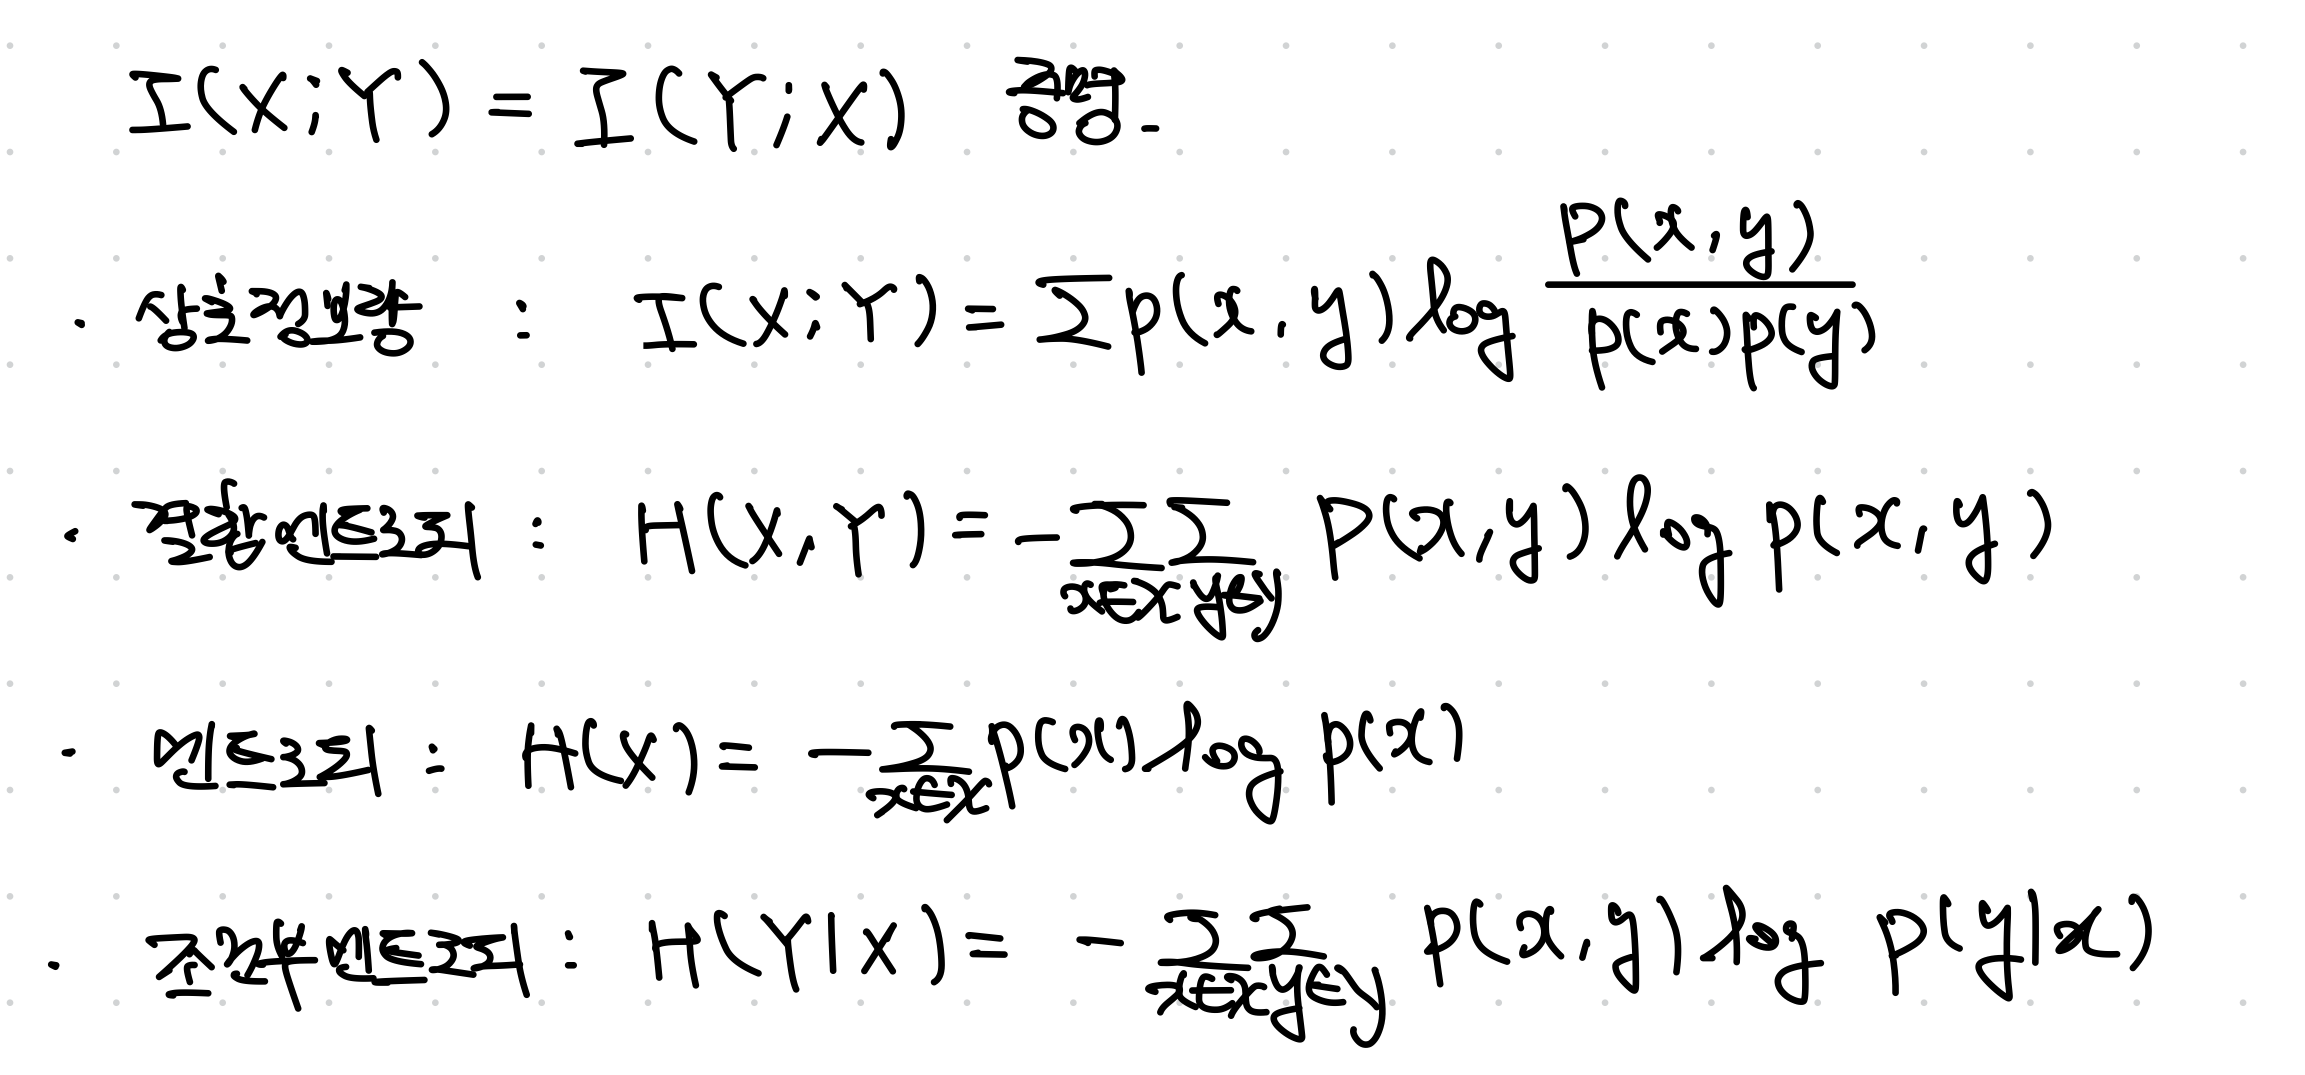 I(X;Y) = I(Y;X) 증명.
· 상호정보량 : I(X;Y) = Σ p(x,y) log p(x,y) / p(x)p(y)
· 결합엔트로피 : H(X,Y) = -Σx∈X Σy∈y p(x,y) log p(x,y)
· 엔트로피 : H(X) = -Σx∈X p(x) log p(x)
· 조건부엔트로피 : H(Y|X) = -Σx∈X Σy∈y p(x,y) log p(y|x)